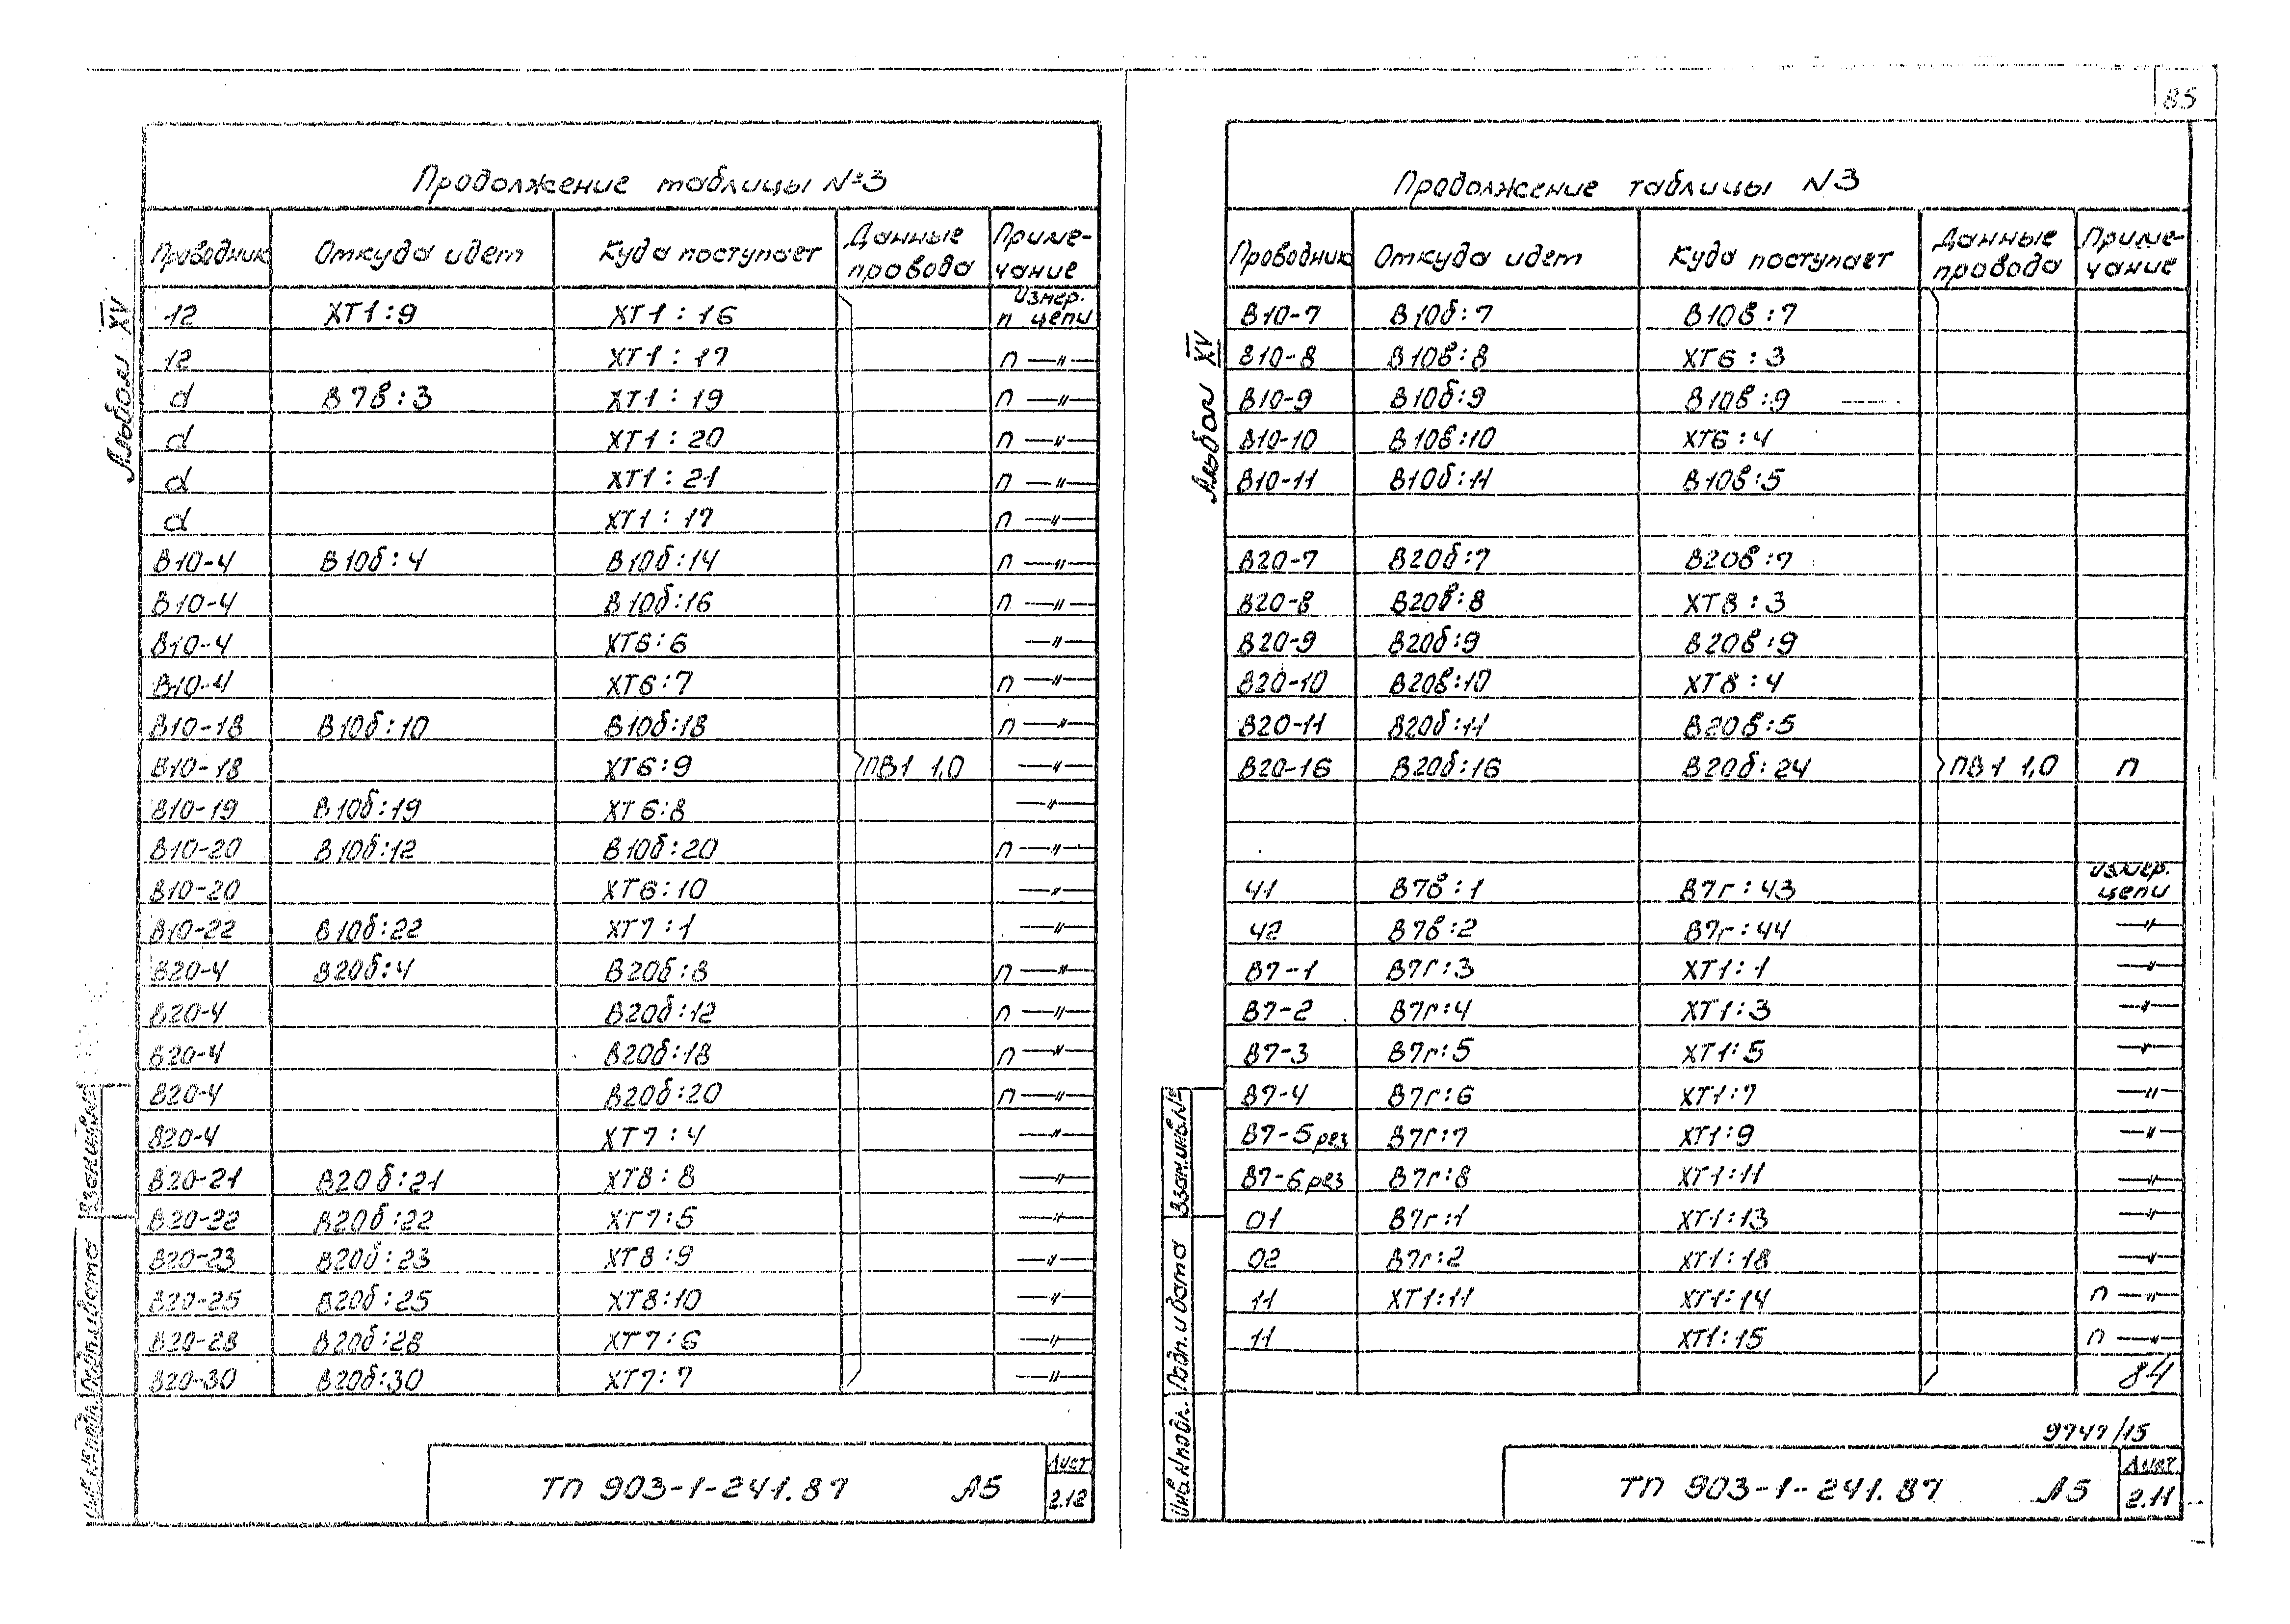 85
Альбом XV
Продолжение таблицы №3
Проводник Откуда идет Куда поступает Данные провода Примечание
12 ХТ1:9 ХТ1:16 п измер. цепи
12 ХТ1:17 п —〃—
d В7в:3 ХТ1:19 п —〃—
d ХТ1:20 п —〃—
d ХТ1:21 п —〃—
d ХТ1:17 п —〃—
В10-4 В10б:4 В10б:14 п —〃—
В10-4 В10б:16 п —〃—
В10-4 ХТ6:6 —〃—
В10-4 ХТ6:7 п —〃—
В10-18 В10б:10 В10б:18 п —〃—
В10-18 ХТ6:9 ПВ1 1,0 —〃—
В10-19 В10б:19 ХТ6:8 —〃—
В10-20 В10б:12 В10б:20 п —〃—
В10-20 ХТ6:10 —〃—
В10-22 В10б:22 ХТ7:1 —〃—
В20-4 В20б:4 В20б:8 п —〃—
В20-4 В20б:12 п —〃—
В20-4 В20б:18 п —〃—
В20-4 В20б:20 п —〃—
В20-4 ХТ7:4 —〃—
В20-21 В20б:21 ХТ8:8 —〃—
В20-22 В20б:22 ХТ7:5 —〃—
В20-23 В20б:23 ХТ8:9 —〃—
В20-25 В20б:25 ХТ8:10 —〃—
В20-28 В20б:28 ХТ7:6 —〃—
В20-30 В20б:30 ХТ7:7 —〃—
Инв.№подл. Подп. и дата Взам.инв.№
ТП 903-1-241.87 А5 Лист 2.12
Альбом XV
Продолжение таблицы N3
Проводник Откуда идет Куда поступает Данные провода Примечание
В10-7 В10б:7 В10в:7
В10-8 В10в:8 ХТ6:3
В10-9 В10б:9 В10в:9
В10-10 В10в:10 ХТ6:4
В10-11 В10б:11 В10в:5
В20-7 В20б:7 В20в:7
В20-8 В20в:8 ХТ8:3
В20-9 В20б:9 В20в:9
В20-10 В20в:10 ХТ8:4
В20-11 В20б:11 В20в:5
В20-16 В20б:16 В20б:24 ПВ1 1,0 п
41 В7в:1 В7г:43 измер. цепи
42 В7в:2 В7г:44 —〃—
В7-1 В7г:3 ХТ1:1 —〃—
В7-2 В7г:4 ХТ1:3 —〃—
В7-3 В7г:5 ХТ1:5 —〃—
В7-4 В7г:6 ХТ1:7 —〃—
В7-5рез В7г:7 ХТ1:9 —〃—
В7-6рез В7г:8 ХТ1:11 —〃—
01 В7г:1 ХТ1:13 —〃—
02 В7г:2 ХТ1:18 —〃—
11 ХТ1:11 ХТ1:14 п —〃—
11 ХТ1:15 п —〃—
84
9747/15
Инв.Nподл. Подп. и дата Взам.инв.№
ТП 903-1-241.87 А5 Лист 2.11